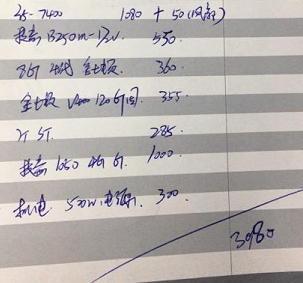 i5-7400 1080 + 50(风扇)
技嘉 B250m-D2v. 550.
8G 4代 金士顿 360.
金士顿 V400 120G 固. 355.
285.
技嘉 1050 4G 1000.
500w 电源. 300.
3980